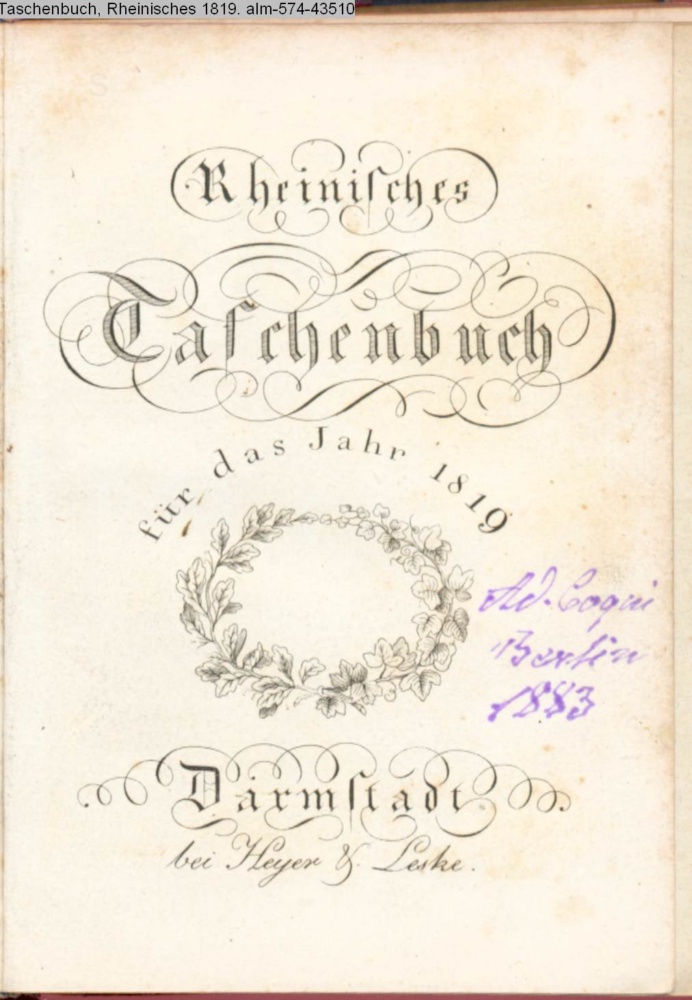 Taschenbuch, Rheinisches 1819. alm-574-43510
Rheiniſches
Taſchenbuch
für das Jahr 1819
Ad. Coqui
Berlin
1883
Darmſtadt
bei Heyer & Leske.